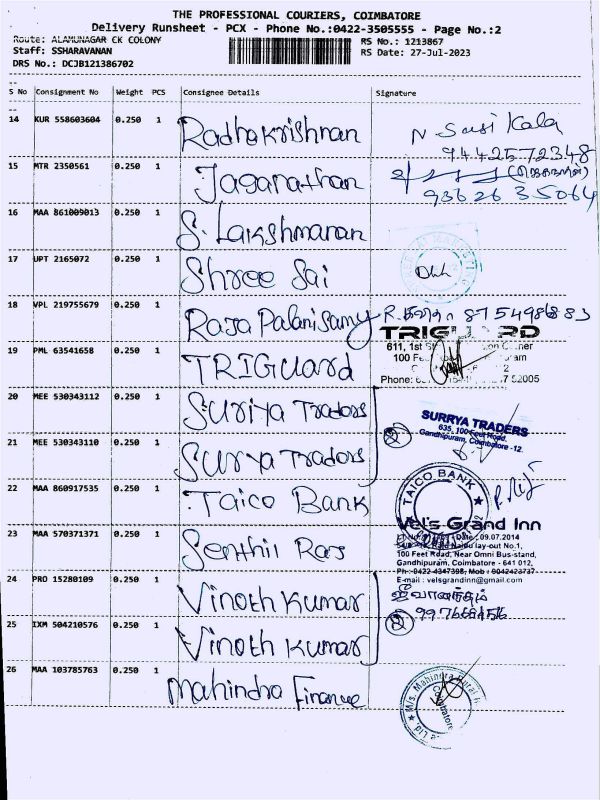 THE PROFESSIONAL COURIERS, COIMBATORE
Delivery Runsheet - PCX - Phone No.:0422-3505555 - Page No.:2
Route: ALAMUNAGAR CK COLONY
RS No.: 1213867
Staff: SSHARAVANAN
RS Date: 27-Jul-2023
DRS No.: DCJB121386702
S No Consignment No Weight PCS Consignee Details Signature
14 KUR 558603604 0.250 1 Radhakrishnan N Sasi Kala
9442572348
15 MTR 2350561 0.250 1 Jaganathan
9362635064
16 MAA 861009013 0.250 1 S. Lakshmanan
17 UPT 2165072 0.250 1 Shree Sai
18 VPL 219755679 0.250 1 Raja Palanisamy R. 8754986883
TRIGUARD
611, 1st
100
19 PML 63541658 0.250 1 TRIGUARD
Phone: 52005
20 MEE 530343112 0.250 1 Suriya Tradors
SURRYA TRADERS
635, 100 Feet Road,
Gandhipuram, Coimbatore -12.
21 MEE 530343110 0.250 1 Surya Tradors
22 MAA 860917535 0.250 1 Taico Bank
TAICO BANK
Vel's Grand Inn
23 MAA 570371371 0.250 1 Senthil Raj
09.07.2014
lay-out No.1,
100 Feet Road, Near Omni Bus-stand,
Gandhipuram, Coimbatore - 641 012.
Ph: 0422-4347398, Mob : 9042423737
E-mail : velsgrandinn@gmail.com
24 PRO 15280109 0.250 1 Vinoth Kumar ஜீவானந்தம்
25 IXM 504210576 0.250 1 Vinoth Kumar
26 MAA 103785763 0.250 1 Mahindra Finance
M/s. Mahindra Rural